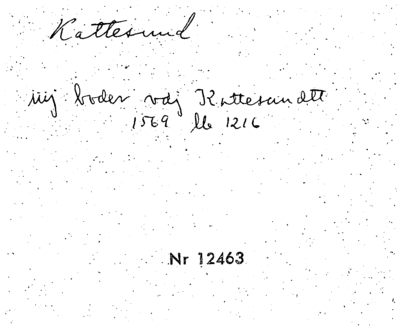 Kattesund
iiij boder vdj Kattesundtt
1569 lb 1216
Nr 12463